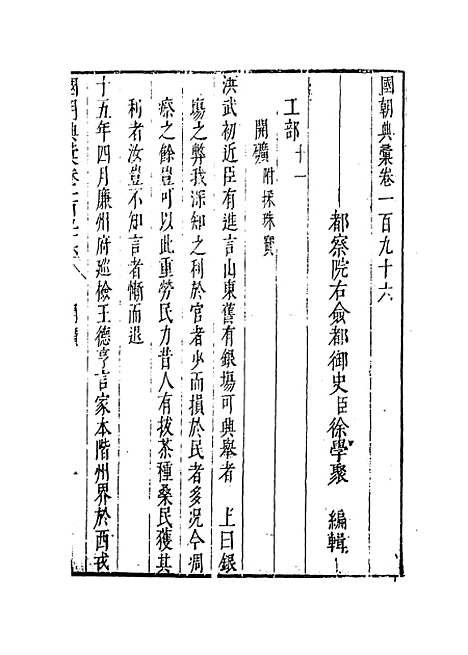 國朝典彙卷一百九十六
都察院右僉都御史臣徐學聚 編輯
工部十一
開礦附採珠寶
洪武初近臣有進言山東舊有銀場可興舉者 上曰銀
場之弊我深知之利於官者少而損於民者多況今凋
瘵之餘豈可以此重勞民力昔人有拔茶種桑民獲其
利者汝豈不知言者慚而退
十五年四月廉州府巡檢王德亨言家本階州界於西戎